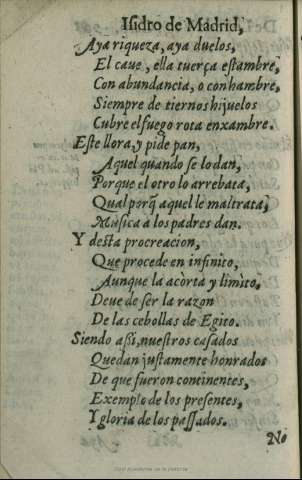 Isidro de Madrid,
Aya riqueza, aya duelos,
El caue, ella tuerça estambre,
Con abundancia, o con hambre,
Siempre de tiernos hijuelos
Cubre el fuego rota enxambre.
Este llora, y pide pan,
Aquel quando se lo dan,
Porque el otro lo arrebata,
Qual porq̃ aquel le maltrata,
Musica a los padres dan.
Y desta procreacion,
Que procede en infinito,
Aunque la acorta y limito,
Deue de ser la razon
De las cebollas de Egito.
Siendo assi, nuestros casados
Quedan justamente honrados
De que fueron continentes,
Exemplo de los presentes,
Y gloria de los passados.
No